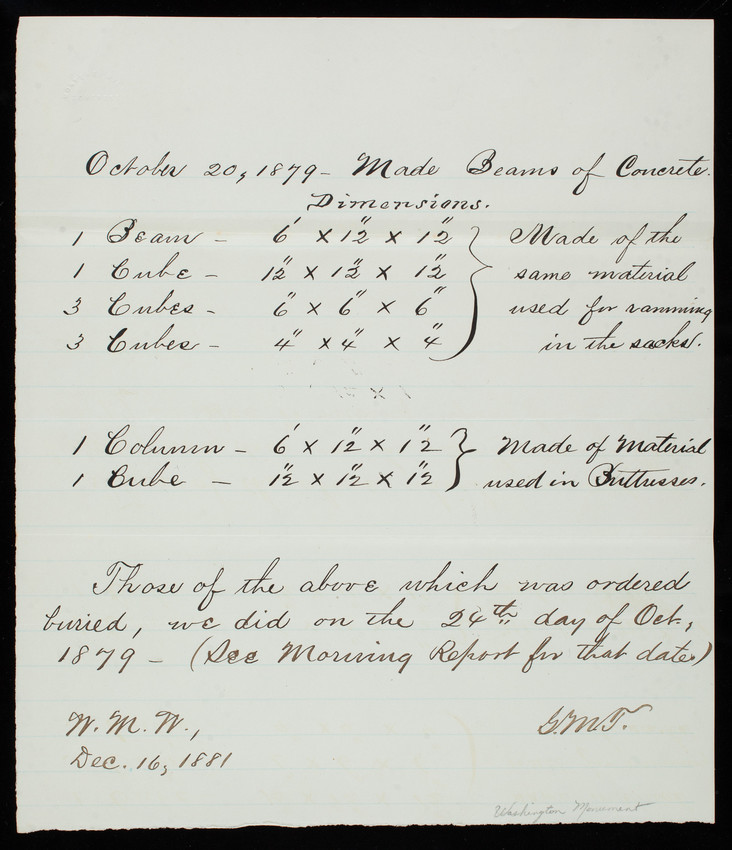 October 20, 1879 - Made Beams of Concrete.
Dimensions.
1 Beam - 6' x 12" x 12" } Made of the
1 Cube - 12" x 12" x 12" same material
3 Cubes - 6" x 6" x 6" used for ramming
3 Cubes - 4" x 4" x 4" in the sacks.
1 Column - 6' x 12" x 12" } Made of Material
1 Cube - 12" x 12" x 12" used in Buttresses.
Those of the above which was ordered
buried, we did on the 24th day of Oct.,
1879 - (See Morning Report for that date.)
W. M. W., G.M.T.
Dec. 16, 1881
Washington Monument